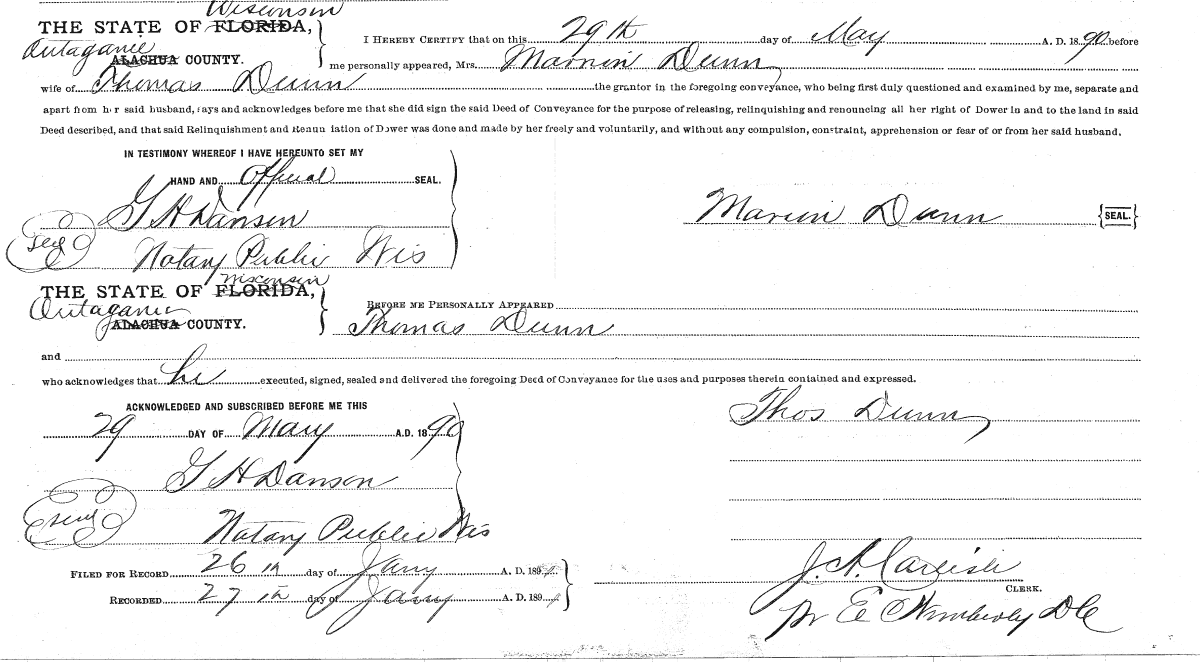 Wisconsin
THE STATE OF FLORIDA,
Outagamie
ALACHUA COUNTY.
I HEREBY CERTIFY that on this 29th day of May A. D. 1890 before
me personally appeared, Mrs. Marion Dunn
wife of Thomas Dunn the grantor in the foregoing conveyance, who being first duly questioned and examined by me, separate and
apart from her said husband, says and acknowledges before me that she did sign the said Deed of Conveyance for the purpose of releasing, relinquishing and renouncing all her right of Dower in and to the land in said
Deed described, and that said Relinquishment and Renunciation of Dower was done and made by her freely and voluntarily, and without any compulsion, constraint, apprehension or fear of or from her said husband.
IN TESTIMONY WHEREOF I HAVE HEREUNTO SET MY
HAND AND Official SEAL.
G H Dansen
Marion Dunn {SEAL.}
Seal
Notary Public Wis
Wisconsin
THE STATE OF FLORIDA,
Outagamie
ALACHUA COUNTY.
BEFORE ME PERSONALLY APPEARED
Thomas Dunn
and
who acknowledges that he executed, signed, sealed and delivered the foregoing Deed of Conveyance for the uses and purposes therein contained and expressed.
ACKNOWLEDGED AND SUBSCRIBED BEFORE ME THIS
Thos Dunn
29 DAY OF May A.D. 1890
G H Danson
Seal
Notary Public Wis
FILED FOR RECORD 26th day of Jany A. D. 189
J. A. Carlisle
CLERK.
RECORDED 27th day of Jany A. D. 189
pr E C Wimberly DC